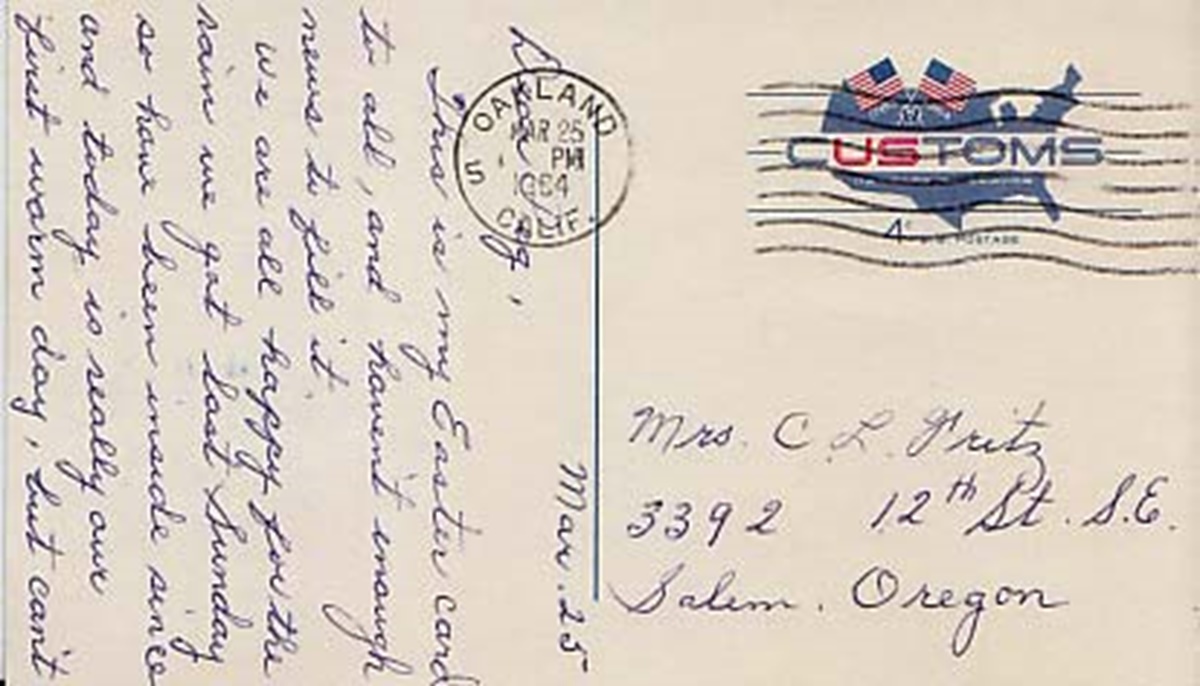 Mar. 25
Dear
This is my Easter card
to all, and haven't enough
news to fill it.
We are all happy for the
rain we got last Sunday
so have been inside since
and today is really our
first warm day, but can't
OAKLAND
MAR 25
PM
5
1964
CALIF.
CUSTOMS
4¢ U.S. POSTAGE
Mrs. C. L. Fritz
3392 12th St. S.E.
Salem, Oregon